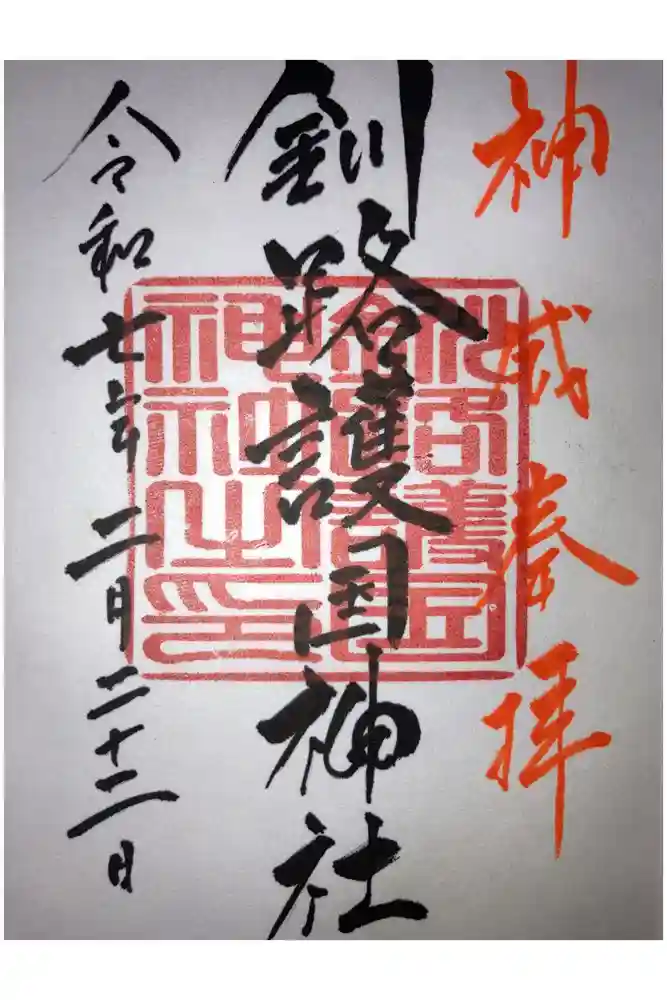 神威奉拝
釧路護国神社
令和七年二月二十二日
釧路護國
神社之印